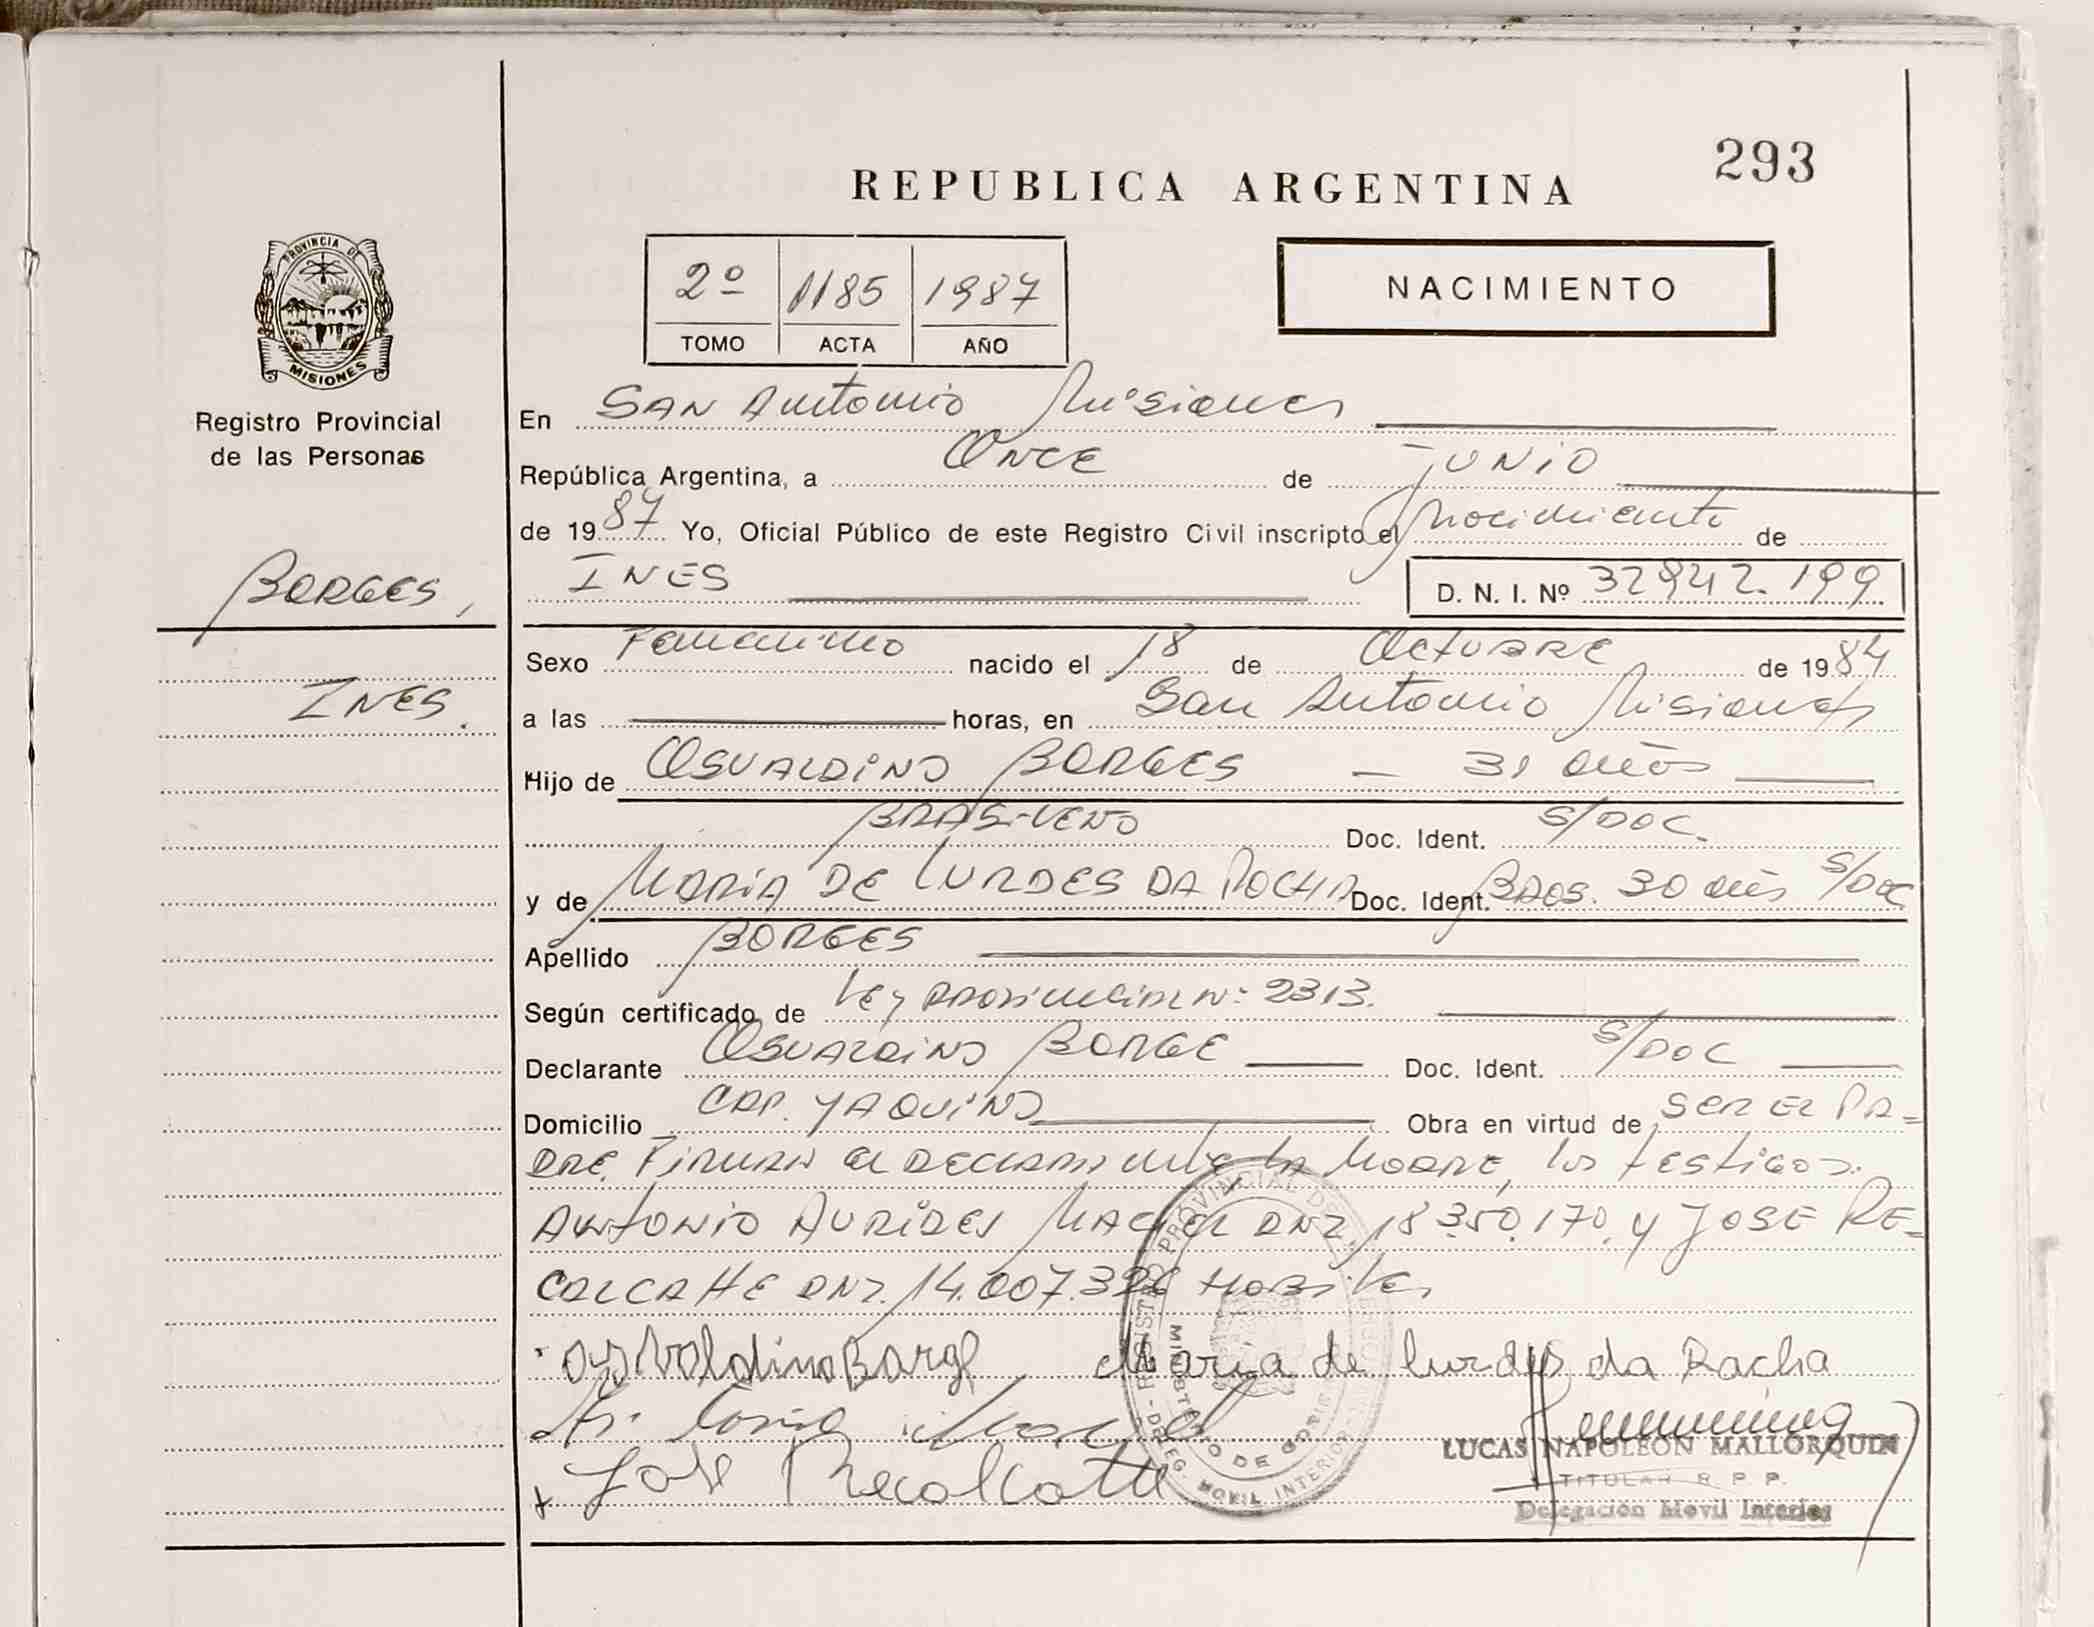 293
REPUBLICA ARGENTINA
2º 1185 1987
TOMO ACTA AÑO
NACIMIENTO
PROVINCIA DE MISIONES
Registro Provincial
de las Personas
BORGES,
INES.
En SAN Antonio Misiones
República Argentina, a ONCE de JUNIO
de 1987 Yo, Oficial Público de este Registro Civil inscripto el Nacimiento de
INES D. N. I. Nº 32942.199
Sexo Femenino nacido el 18 de OCTUBRE de 1984
a las horas, en San Antonio Misiones
Hijo de OSVALDINO BORGES - 31 años
BRASILENO Doc. Ident. S/DOC.
y de MARIA DE LURDES DA ROCHA Doc. Ident. BRAS. 30 años S/DOC
Apellido BORGES
Según certificado de Ley PROVINCIAL Nº 2313.
Declarante OSVALDINO BORGE Doc. Ident. S/DOC
Domicilio CAP. YAQUINO Obra en virtud de SER EL PA=
DRE. FIRMAN el DECLARANTE LA MADRE, los testigos.
ANTONIO AURIDES MACIEL DNI 18.350.170, y JOSE RE=
CALCATTE DNI. 14.007.326 HABILES
OsValdino Borge Maria de lurdes da Racha
José Recalcatte
LUCAS NAPOLEON MALLORQUIN
TITULAR R. P. P.
Delegación Movil Interior
REGISTRO PROVINCIAL DE
MINISTERIO DE GOBIERNO
DELEG. MOVIL INTERIOR